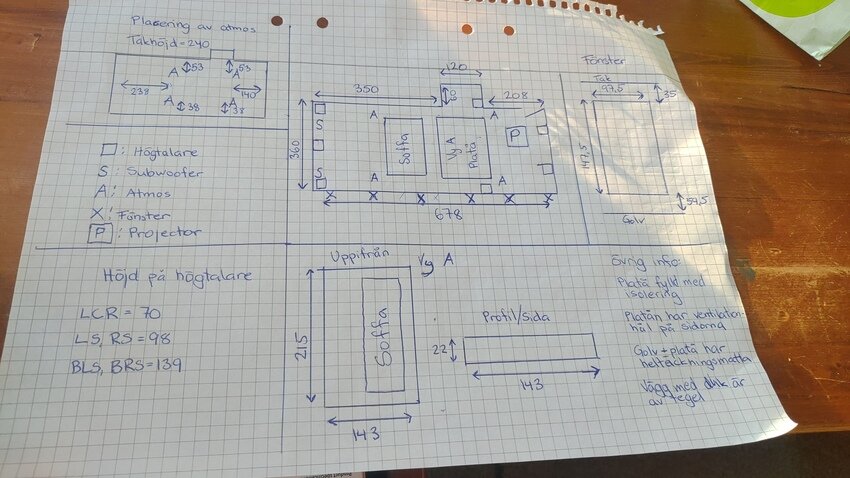 Placering av atmos
Takhöjd = 240
53
53
A
A
238
140
A
A
38
38
□: Högtalare
S: Subwoofer
A: Atmos
X: Fönster
P: Projector
120
350
60
208
360
S
A
A
Soffa
Vy A
Platå
P
S
A
A
X X X X X X
678
Fönster
Tak
97,5
35
147,5
59,5
Golv
Höjd på högtalare
LCR = 70
LS, RS = 98
BLS, BRS = 139
Uppifrån
Vy A
Soffa
215
143
Profil/Sida
22
143
Övrig info:
Platå fylld med
isolering
Platån har ventilation
hål på sidorna
Golv + platå har
heltäckningsmatta
Vägg med duk är
av tegel